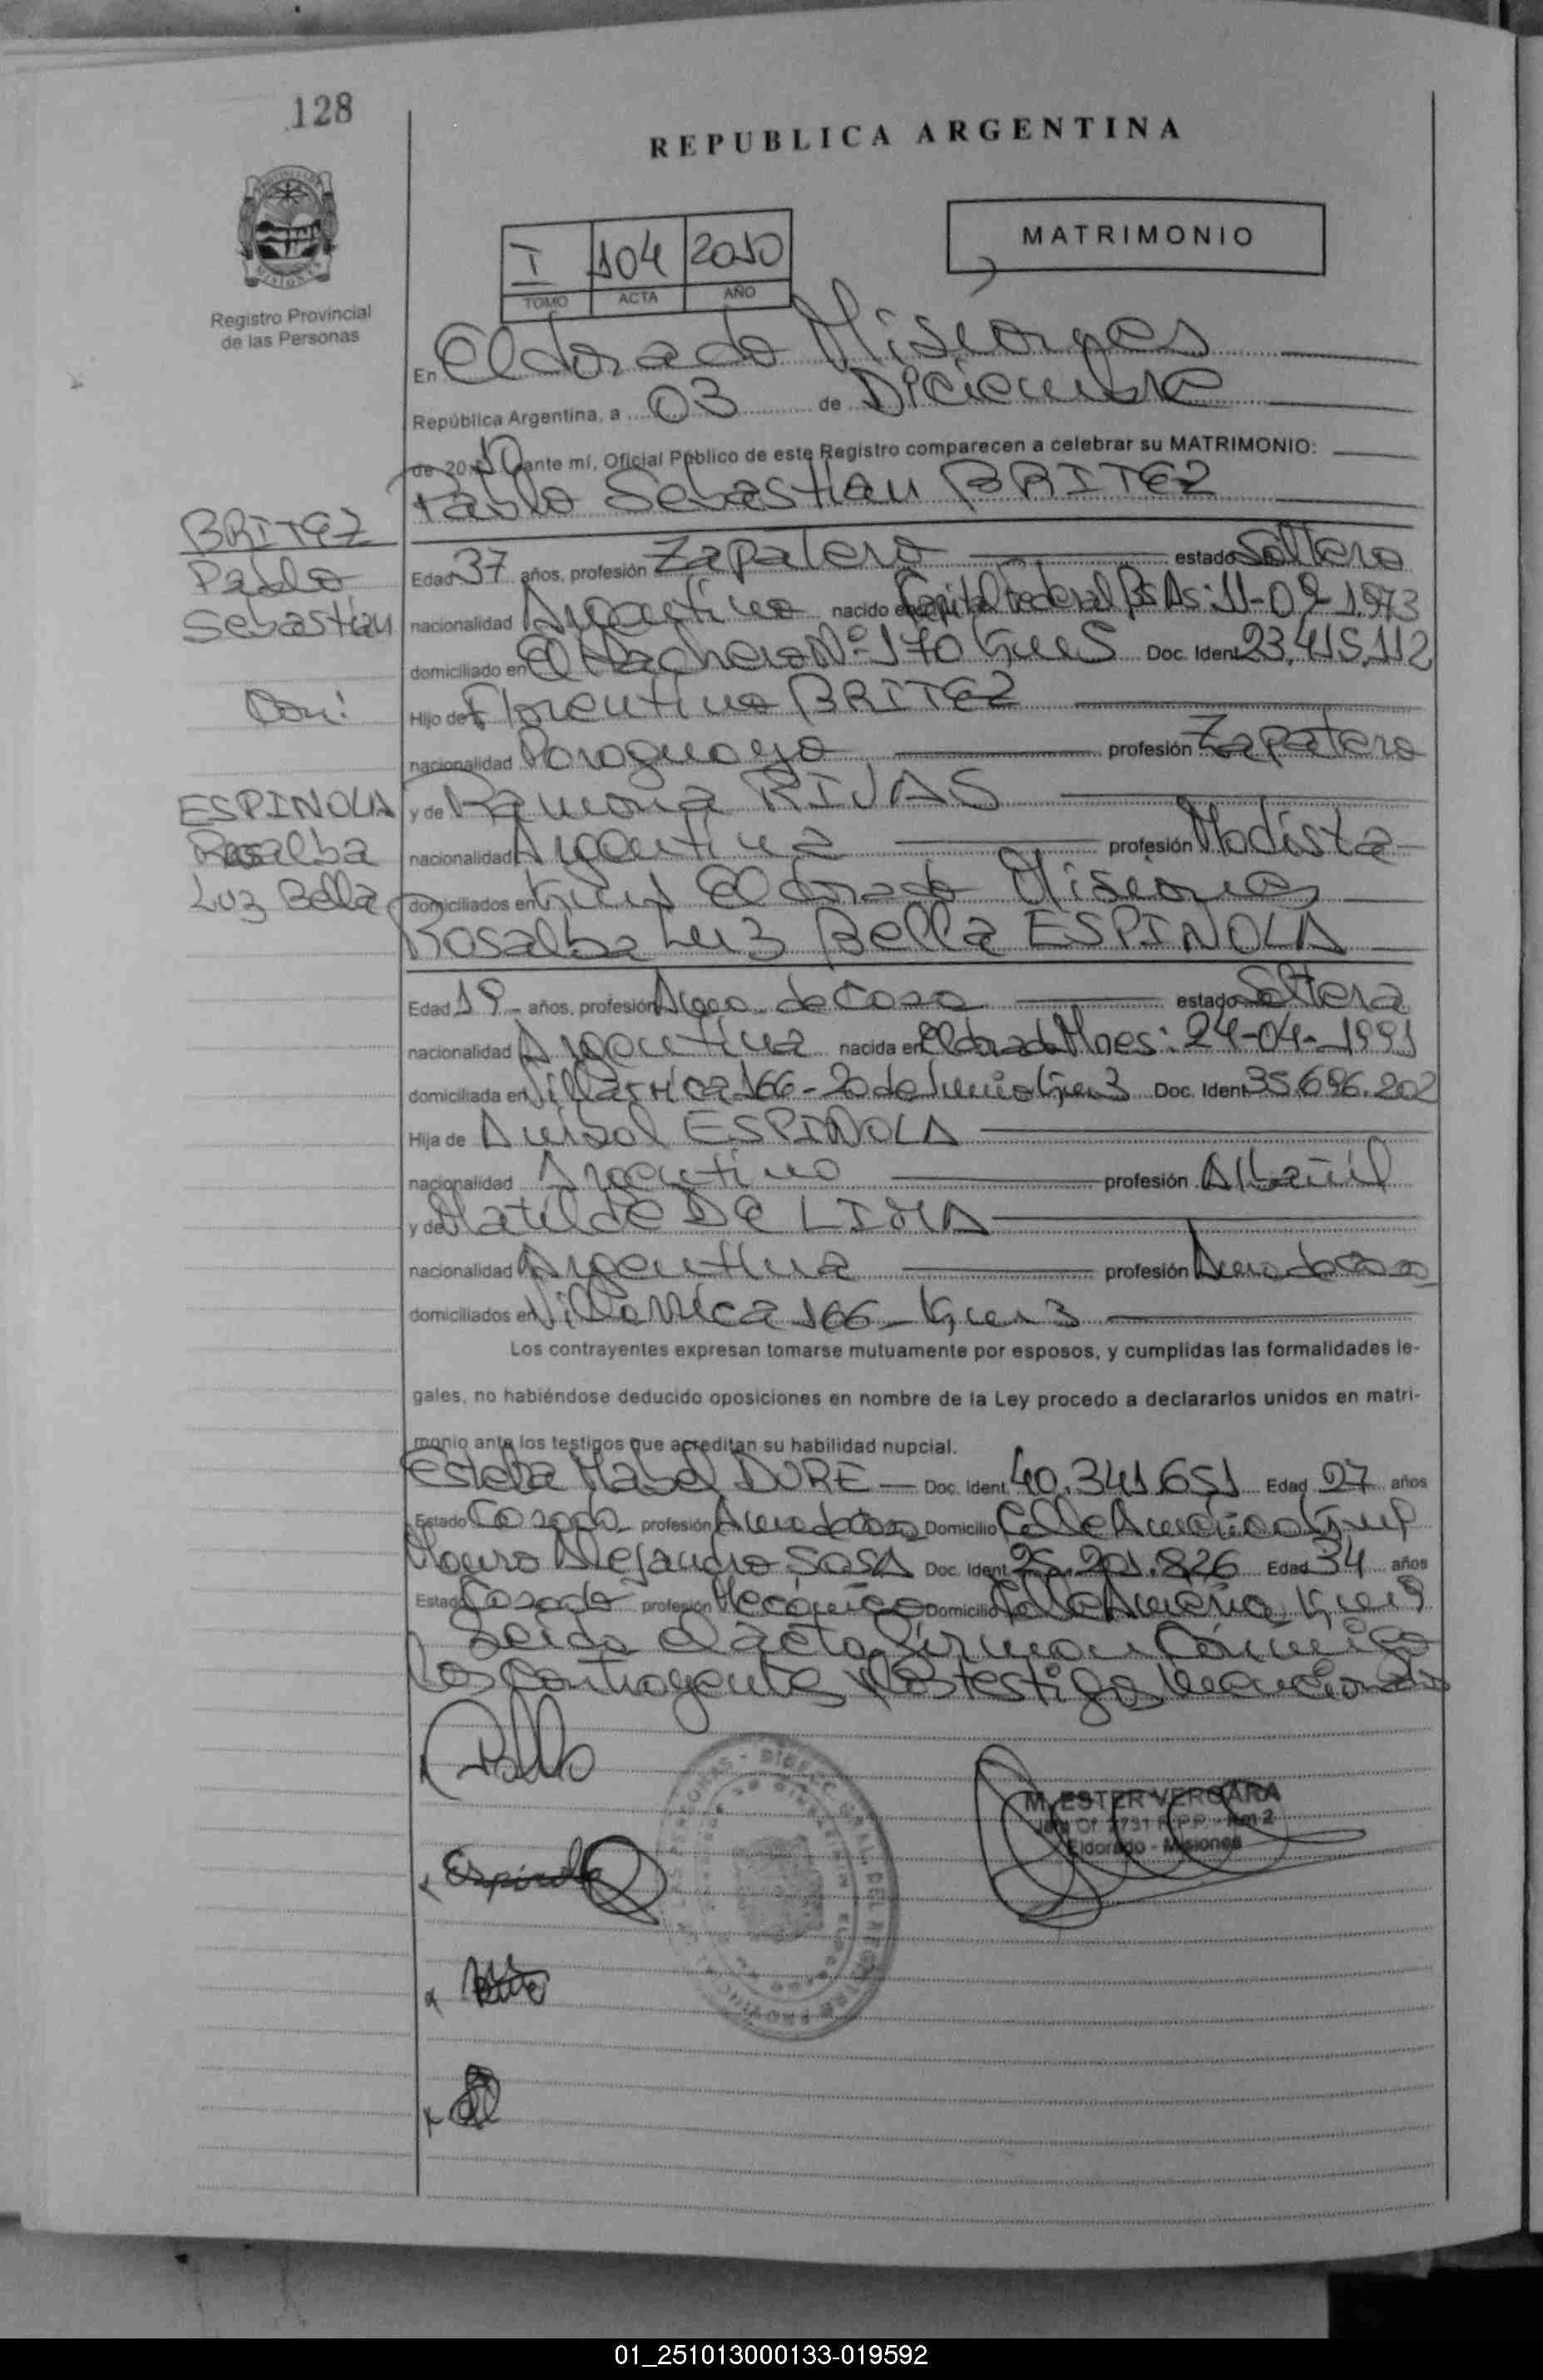 128
REPUBLICA ARGENTINA
MATRIMONIO
I 104 2010
TOMO ACTA AÑO
Registro Provincial
de las Personas
En Eldorado Misiones
República Argentina, a 03 de Diciembre
de 2010 ante mí, Oficial Público de este Registro comparecen a celebrar su MATRIMONIO:
Pablo Sebastian BRITEZ
BRITEZ
Pablo
Sebastian
Con:
ESPINOLA
Rosalba
Luz Bella
Edad 37 años, profesión Zapatero estado Soltero
nacionalidad Argentino nacido en Capital Federal Bs As: 11-09-1973
domiciliado en El Hachero Nº 170 Doc. Ident 23,415,112
Hijo de Florentino BRITEZ
nacionalidad Paraguayo profesión Zapatero
y de Ramona RIVAS
nacionalidad Argentina profesión Modista
domiciliados en Eldorado Misiones
Rosalba Luz Bella ESPINOLA
Edad 19 años, profesión Ama de Casa estado Soltera
nacionalidad Argentina nacida en Eldorado Mnes: 24-04-1991
domiciliada en Villarrica 166 - 20 de Junio Km 3 Doc. Ident 35.696.202
Hija de ESPINOLA
nacionalidad Argentino profesión Albañil
y de Matilde DE LIMA
nacionalidad Argentina profesión Ama de Casa
domiciliados en Villarrica 166 - Km 3
Los contrayentes expresan tomarse mutuamente por esposos, y cumplidas las formalidades le-
gales, no habiéndose deducido oposiciones en nombre de la Ley procedo a declararlos unidos en matri-
monio ante los testigos que acreditan su habilidad nupcial.
Mabel DURE Doc. Ident. 40.341.651 Edad 27 años
Estado Casada profesión Ama de Casa Domicilio Calle America
Mauro Alejandro SOSA Doc. Ident. 25.201.826 Edad 34 años
Estado Casado profesión Mecánico Domicilio Calle America Km 9
Leida el acta firman Conmigo
los Contrayentes y los testigos mencionados
Pablo
M. ESTER VERGARA
R.P.P. - Km 2
Eldorado - Misiones
Espinola
01_251013000133-019592